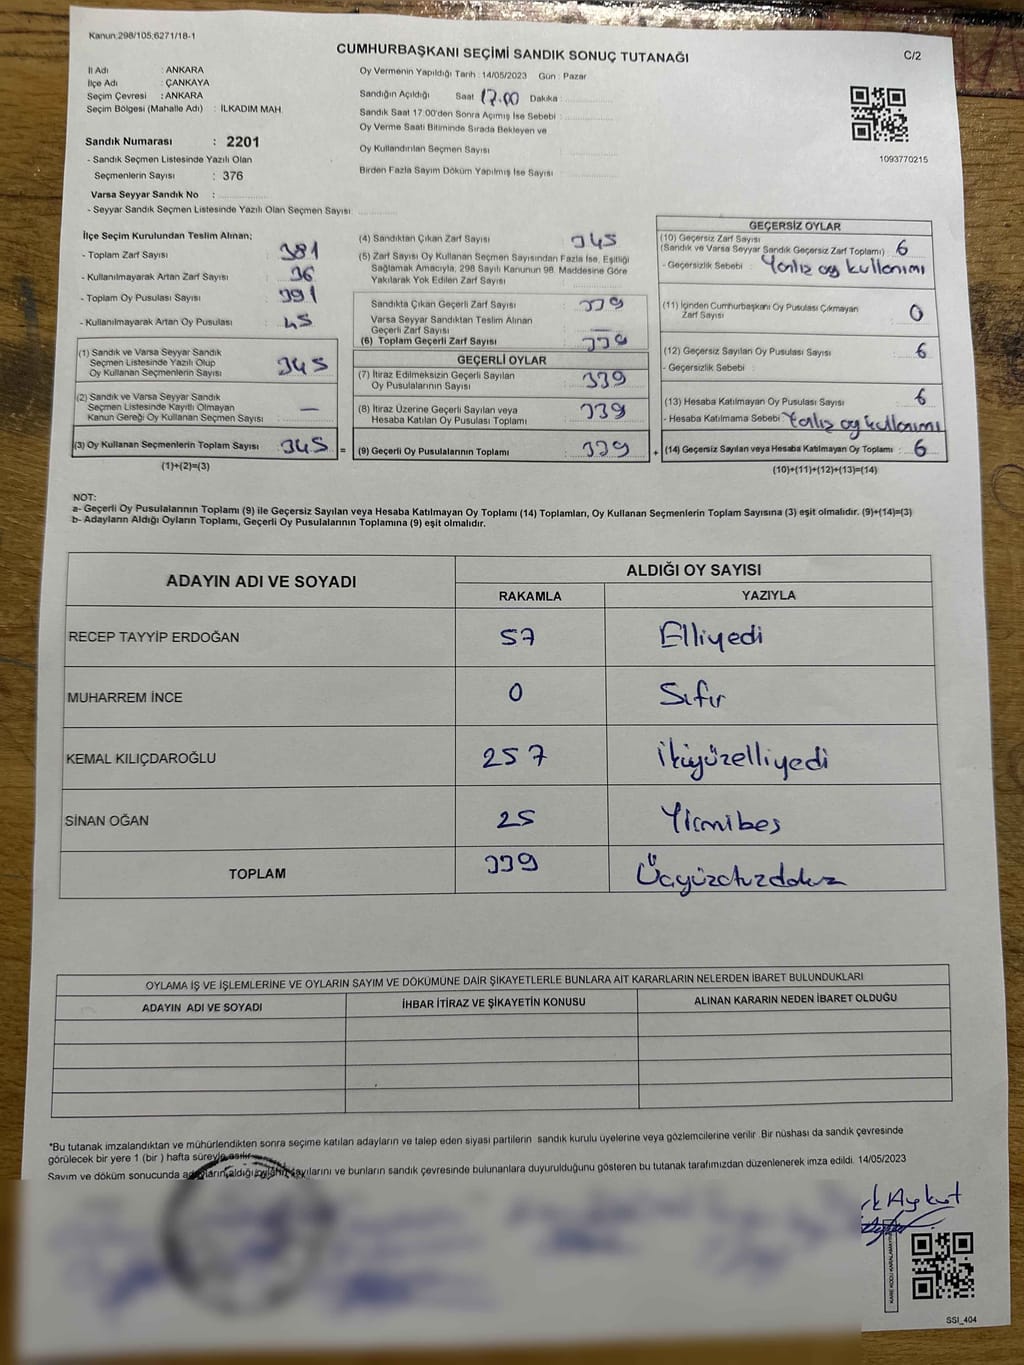 Kanun.298/105.6271/18-1
CUMHURBAŞKANI SEÇİMİ SANDIK SONUÇ TUTANAĞI
C/2
İl Adı : ANKARA
İlçe Adı : ÇANKAYA
Seçim Çevresi : ANKARA
Seçim Bölgesi (Mahalle Adı) : İLKADIM MAH.
Sandık Numarası : 2201
- Sandık Seçmen Listesinde Yazılı Olan
Seçmenlerin Sayısı : 376
Varsa Seyyar Sandık No :
- Seyyar Sandık Seçmen Listesinde Yazılı Olan Seçmen Sayısı:
Oy Vermenin Yapıldığı Tarih : 14/05/2023 Gün : Pazar
Sandığın Açıldığı Saat 17.00 Dakika :
Sandık Saat 17.00'den Sonra Açımış İse Sebebi :
Oy Verme Saati Bitiminde Sırada Bekleyen ve
Oy Kullandırılan Seçmen Sayısı
Birden Fazla Sayım Döküm Yapılmış İse Sayısı
1093770215
İlçe Seçim Kurulundan Teslim Alınan;
- Toplam Zarf Sayısı : 381
- Kullanılmayarak Artan Zarf Sayısı : 36
- Toplam Oy Pusulası Sayısı : 391
- Kullanılmayarak Artan Oy Pusulası : 45
(1) Sandık ve Varsa Seyyar Sandık
Seçmen Listesinde Yazılı Olup
Oy Kullanan Seçmenlerin Sayısı : 345
(2) Sandık ve Varsa Seyyar Sandık
Seçmen Listesinde Kayıtlı Olmayan
Kanun Gereği Oy Kullanan Seçmen Sayısı : —
(3) Oy Kullanan Seçmenlerin Toplam Sayısı : 345 =
(1)+(2)=(3)
(4) Sandıktan Çıkan Zarf Sayısı : 345
(5) Zarf Sayısı Oy Kullanan Seçmen Sayısından Fazla İse, Eşitliği
Sağlamak Amacıyla, 298 Sayılı Kanunun 98. Maddesine Göre
Yakılarak Yok Edilen Zarf Sayısı :
Sandıkta Çıkan Geçerli Zarf Sayısı : 339
Varsa Seyyar Sandıktan Teslim Alınan
Geçerli Zarf Sayısı : —
(6) Toplam Geçerli Zarf Sayısı : 339
GEÇERLİ OYLAR
(7) İtiraz Edilmeksizin Geçerli Sayılan
Oy Pusulalarının Sayısı : 339
(8) İtiraz Üzerine Geçerli Sayılan veya
Hesaba Katılan Oy Pusulası Toplamı : 339
(9) Geçerli Oy Pusulalarının Toplamı : 339 +
GEÇERSİZ OYLAR
(10) Geçersiz Zarf Sayısı
(Sandık ve Varsa Seyyar Sandık Geçersiz Zarf Toplamı) : 6
- Geçersizlik Sebebi : Yanlız oy kullanımı
(11) İçinden Cumhurbaşkanı Oy Pusulası Çıkmayan
Zarf Sayısı : 0
(12) Geçersiz Sayılan Oy Pusulası Sayısı : 6
- Geçersizlik Sebebi :
(13) Hesaba Katılmayan Oy Pusulası Sayısı : 6
- Hesaba Katılmama Sebebi : Yanlız oy kullanımı
(14) Geçersiz Sayılan veya Hesaba Katılmayan Oy Toplamı : 6
(10)+(11)+(12)+(13)=(14)
NOT:
a- Geçerli Oy Pusulalarının Toplamı (9) ile Geçersiz Sayılan veya Hesaba Katılmayan Oy Toplamı (14) Toplamları, Oy Kullanan Seçmenlerin Toplam Sayısına (3) eşit olmalıdır. (9)+(14)=(3)
b- Adayların Aldığı Oyların Toplamı, Geçerli Oy Pusulalarının Toplamına (9) eşit olmalıdır.
ADAYIN ADI VE SOYADI ALDIĞI OY SAYISI
RAKAMLA YAZIYLA
RECEP TAYYİP ERDOĞAN 57 Elliyedi
MUHARREM İNCE 0 Sıfır
KEMAL KILIÇDAROĞLU 257 İkiyüzelliyedi
SİNAN OĞAN 25 Yirmibeş
TOPLAM 339 Üçyüzotuzdokuz
OYLAMA İŞ VE İŞLEMLERİNE VE OYLARIN SAYIM VE DÖKÜMÜNE DAİR ŞİKAYETLERLE BUNLARA AİT KARARLARIN NELERDEN İBARET BULUNDUKLARI
ADAYIN ADI VE SOYADI İHBAR İTİRAZ VE ŞİKAYETİN KONUSU ALINAN KARARIN NEDEN İBARET OLDUĞU
*Bu tutanak imzalandıktan ve mühürlendikten sonra seçime katılan adayların ve talep eden siyasi partilerin sandık kurulu üyelerine veya gözlemcilerine verilir. Bir nüshası da sandık çevresinde
görülecek bir yere 1 (bir ) hafta süreyle asılır.
Sayım ve döküm sonucunda adayların aldığı oyların sayılarını ve bunların sandık çevresinde bulunanlara duyurulduğunu gösteren bu tutanak tarafımızdan düzenlenerek imza edildi. 14/05/2023
Aykut
SSI_404